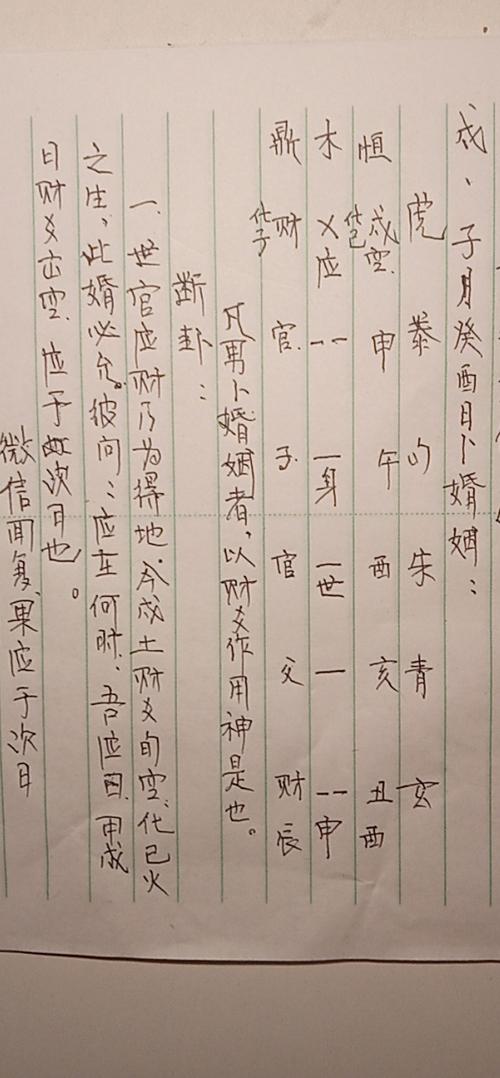 戌、子月癸酉日卜婚姻：
虎 螣 勾 朱 青 玄
恒 戌空化巳 申 午 酉 亥 丑 酉
木 乂应 -- 一身 一世 一 -- 申
鼎 财化子 官 子 官 父 财 辰
凡男卜婚姻者，以财爻作用神是也。
断卦：
一、世官应财乃为得地。今戌土财爻旬空、化巳火
之生，此婚必允。彼问：应在何时、吾应曰、甲戌
日财爻出空、应于次日也。
微信面复、果应于次日